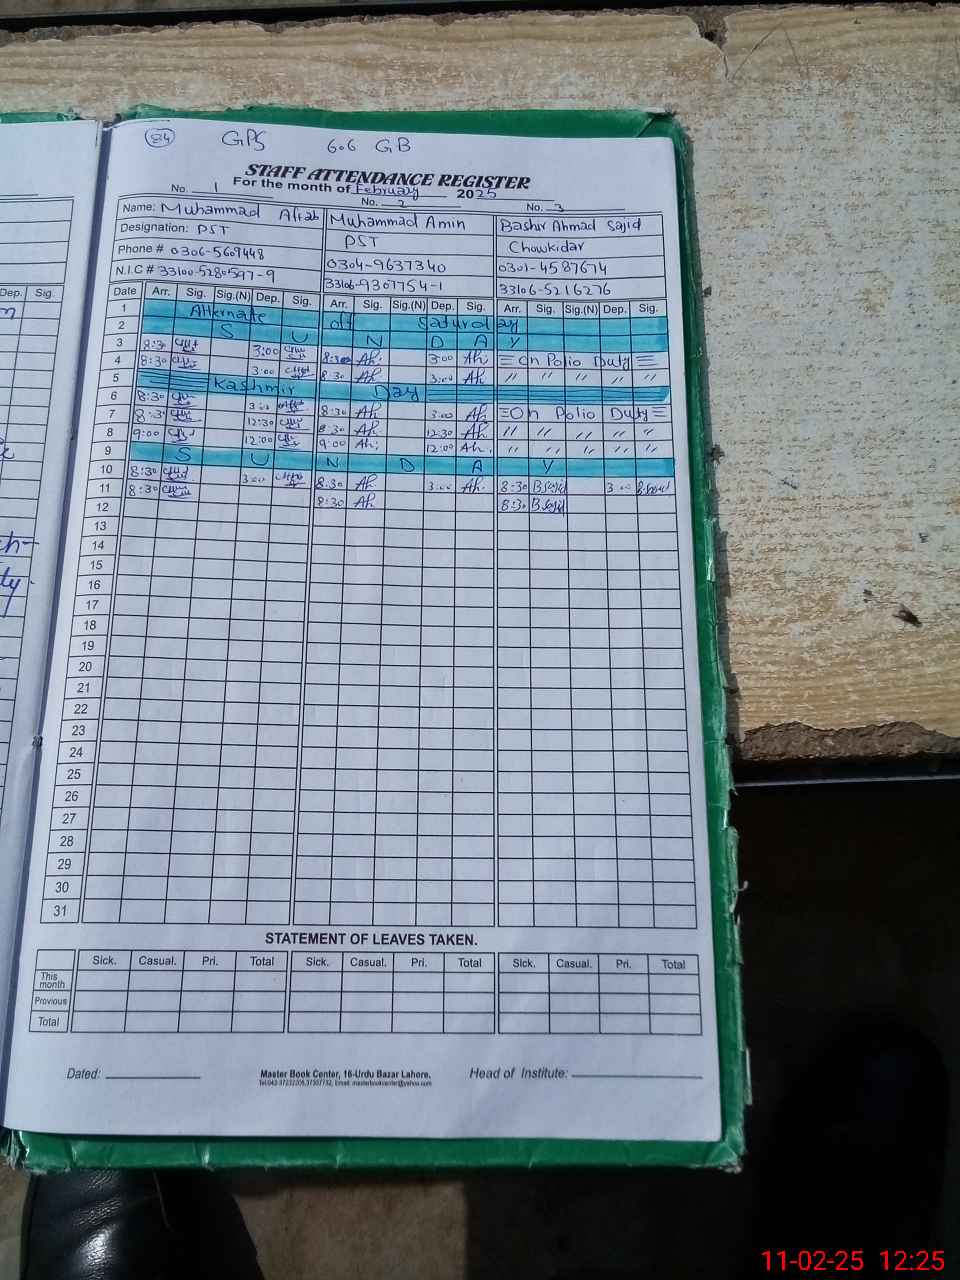 84 GPS 606 GB
STAFF ATTENDANCE REGISTER
For the month of February 2025
No. 1 No. 2 No. 3
Name: Muhammad Aftab Muhammad Amin Bashir Ahmad Sajid
Designation: PST PST Chowkidar
Phone # 0306-5609448 0304-9637340 0301-4587674
N.I.C # 33100-5280597-9 33106-9307754-1 33106-5216276
Dep. Sig.
Date Arr. Sig. Sig.(N) Dep. Sig. Arr. Sig. Sig.(N) Dep. Sig. Arr. Sig. Sig.(N) Dep. Sig.
1 Alternate off Saturday
2 S U N D A Y
3 8:30 3:00 8:30 Ah. 3:00 Ah. On Polio Duty
4 8:30 3:00 8:30 Ah. 3:00 Ah. " " " " "
5 Kashmir Day
6 8:30 3:00 8:30 Ah. 3:00 Ah. On Polio Duty
7 8:30 12:30 8:30 Ah. 12:30 Ah. " " " " "
8 9:00 12:00 9:00 Ah. 12:00 Ah. " " " " "
9 S U N D A Y
10 8:30 3:00 8:30 Ah. 3:00 Ah. 8:30 B.Sajid 3:00 B.Sajid
11 8:30 8:30 Ah. 8:30 B.Sajid
12
13
14
15
16
17
18
19
20
21
22
23
24
25
26
27
28
29
30
31
STATEMENT OF LEAVES TAKEN.
Sick. Casual. Pri. Total Sick. Casual. Pri. Total Sick. Casual. Pri. Total
This month
Previous
Total
Dated: Master Book Center, 16-Urdu Bazar Lahore. Head of Institute:
11-02-25 12:25